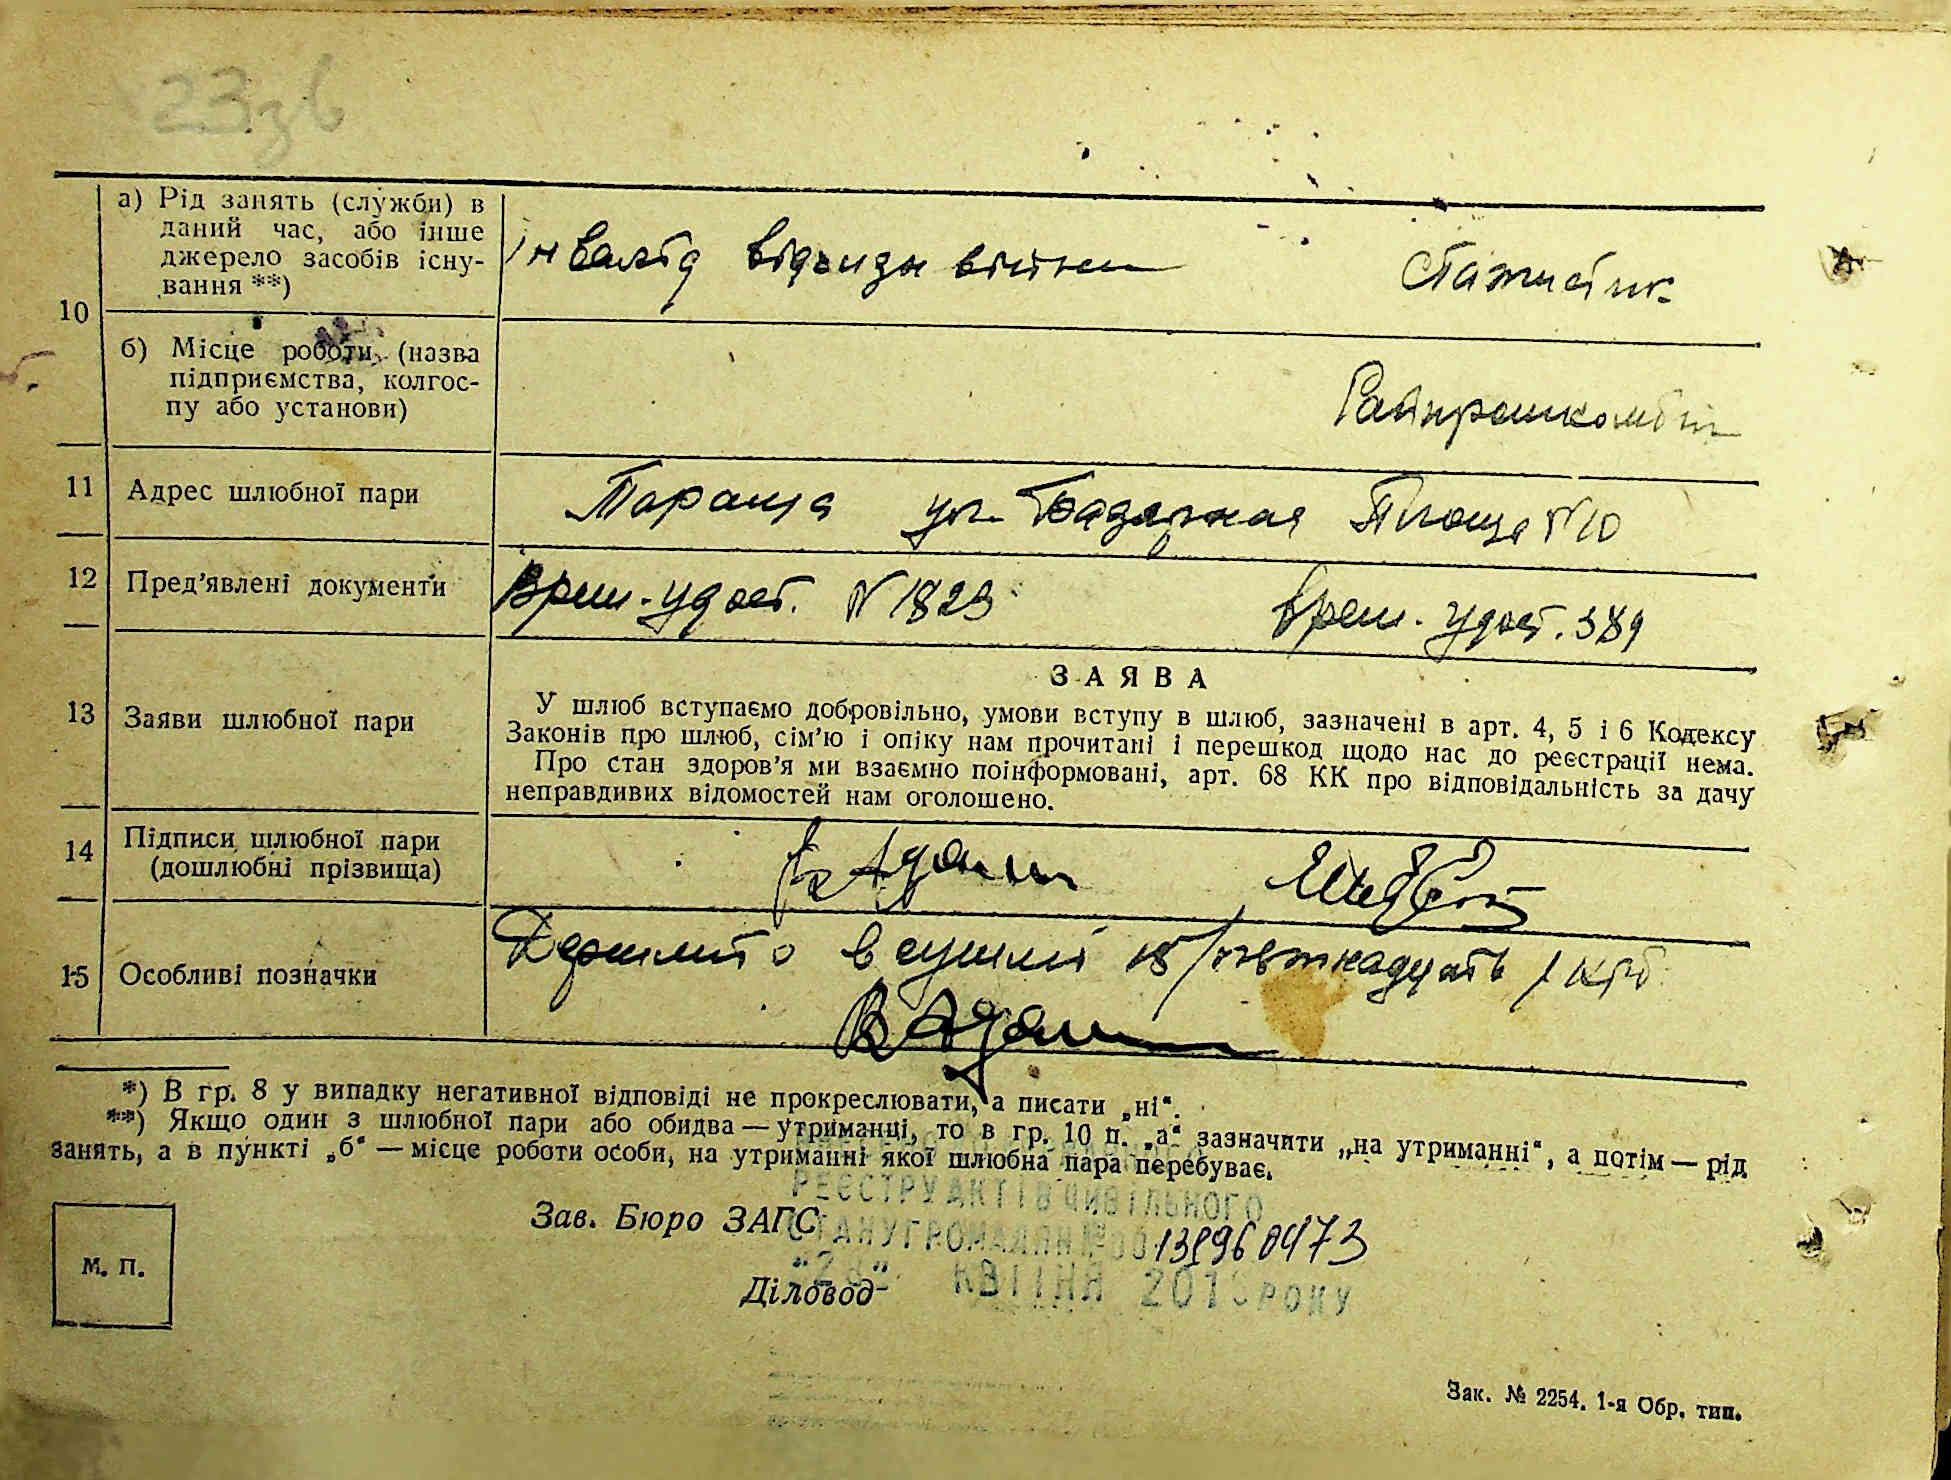 23зв
а) Рід занять (служби) в
даний час, або інше
джерело засобів існу-
вання **)
Інвалід війни
10
б) Місце роботи (назва
підприємства, колгос-
пу або установи)
Райпромкомбін
11 Адрес шлюбної пари
Тараща ул. Базарная Площа №10
12 Пред'явлені документи
Врем. удост. №1823 Врем. удост. 389
13 Заяви шлюбної пари
ЗАЯВА
У шлюб вступаємо добровільно, умови вступу в шлюб, зазначені в арт. 4, 5 і 6 Кодексу
Законів про шлюб, сім'ю і опіку нам прочитані і перешкод щодо нас до реєстрації нема.
Про стан здоров'я ми взаємно поінформовані, арт. 68 КК про відповідальність за дачу
неправдивих відомостей нам оголошено.
14 Підписи шлюбної пари
(дошлюбні прізвища)
15 Особливі позначки
Держмито в сумі 15 / крб
*) В гр. 8 у випадку негативної відповіді не прокреслювати, а писати „ні“.
**) Якщо один з шлюбної пари або обидва — утриманці, то в гр. 10 п. „а“ зазначити „на утриманні“, а потім — рід
занять, а в пункті „б“ — місце роботи особи, на утриманні якої шлюбна пара перебуває.
РЕЄСТРУ АКТІВ ЦИВІЛЬНОГО
Зав. Бюро ЗАГС
СТАНУ ГРОМАДЯН № 00138960473
КВІТНЯ РОКУ
Діловод
М. П.
Зак. № 2254. 1-я Обр. тип.